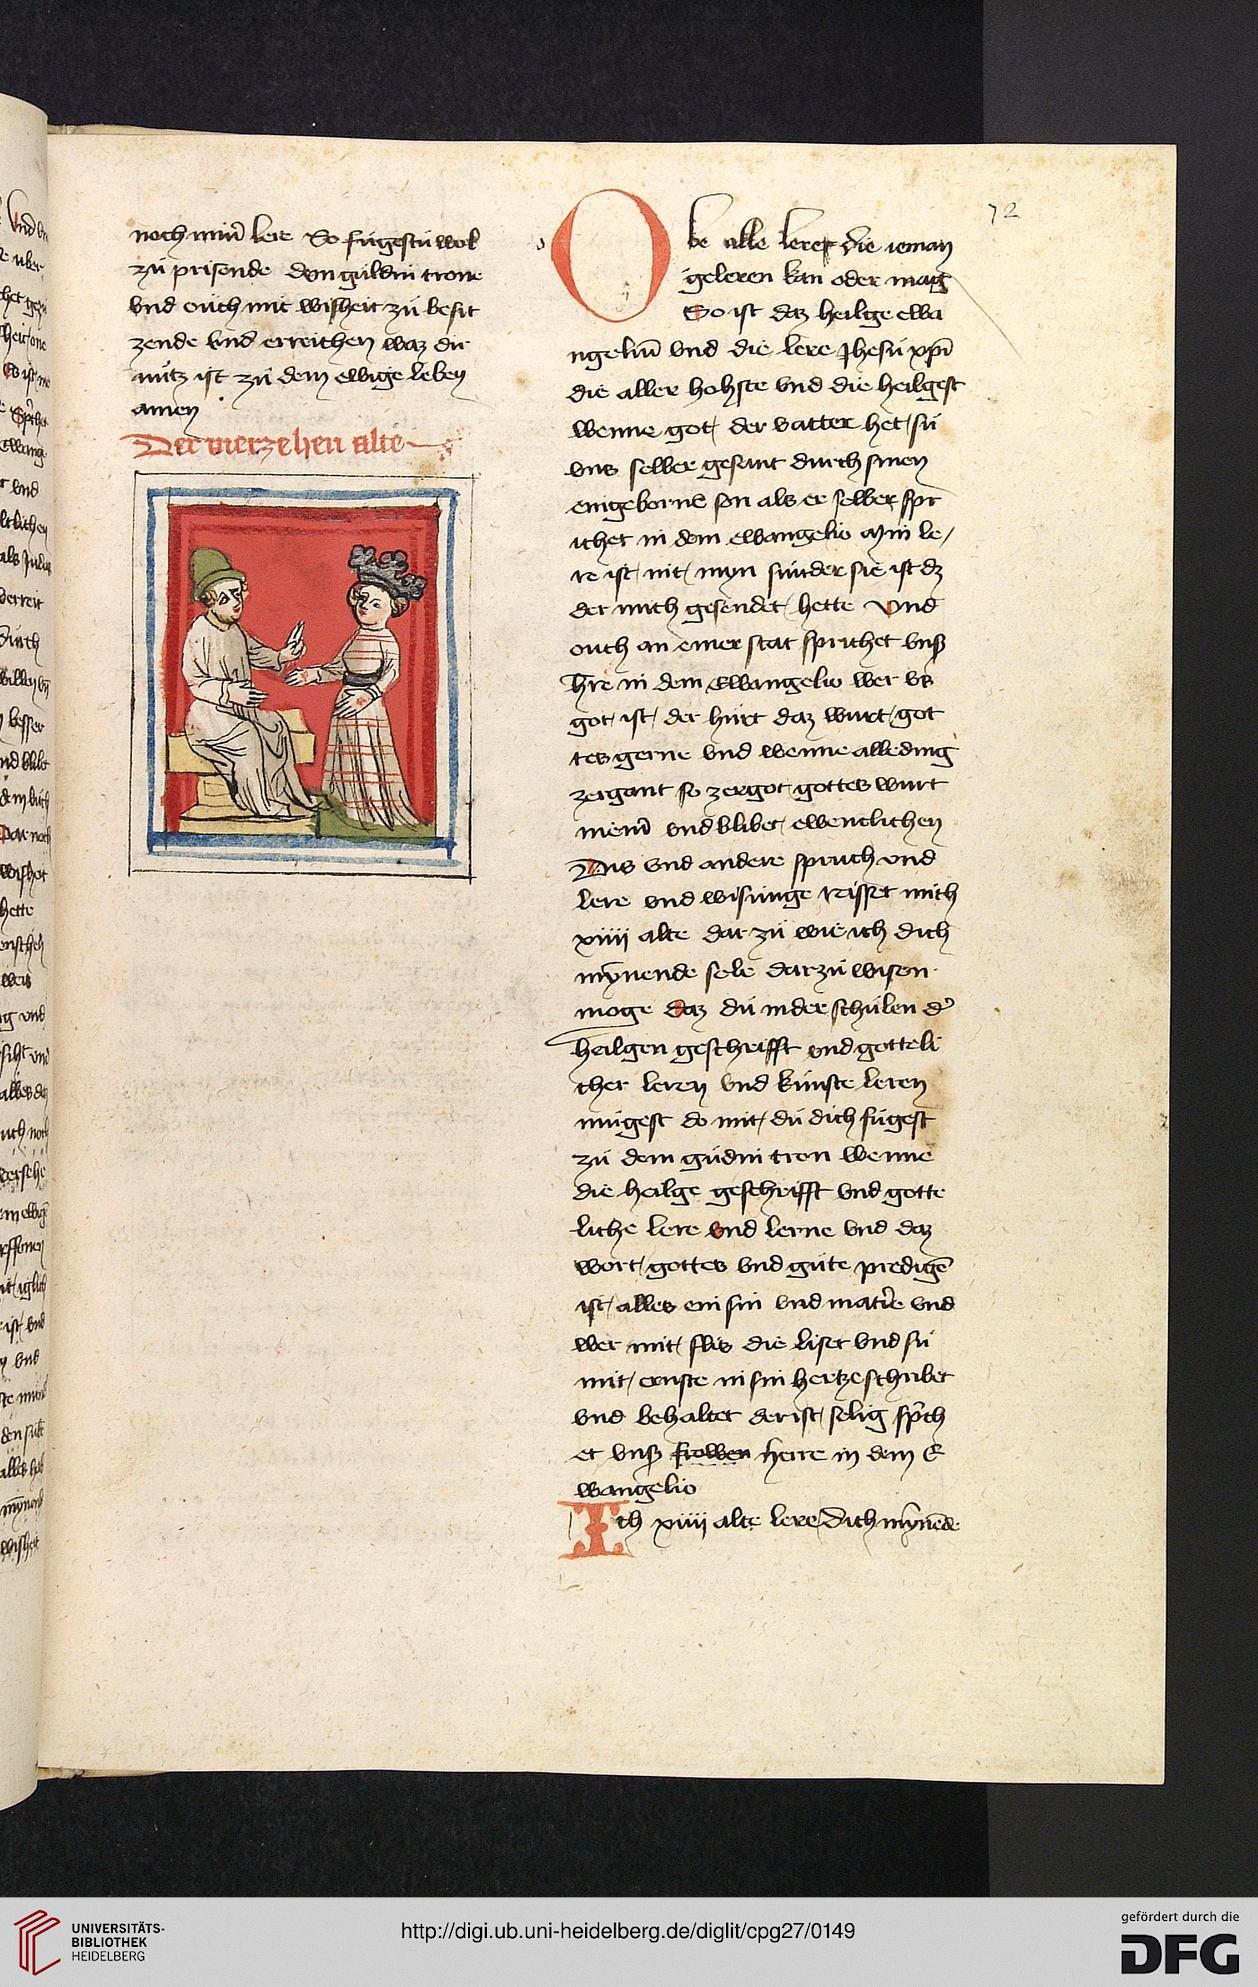 72
noch minr̄ lere So fügestu wol
zü prisende dem guldin trone
vnd ouch mit wisheit zü besit
zende vnd erreichen waz dir
nütz ist zü dem ewige leben
amen
Der vierzehen alte
Obe alle lerer die ieman
geleren kan oder mag
So ist daz heilge ewa
ngeliū vnd die lere Jhesu xp̄i
die aller hohste vnd die heilgest
wenne got der vatter het sü
vns selber gesant durch sinen
eingebornē son als er selber spr
ichet in dem ewangelio Min le/
re ist nit myn sunder sie ist dz
der mich gesendet hette Vnd
ouch an einer stat sprichet vnß
h̄re in dem ewangelio wer vs
got ist der hürt daz wurt got
tes gerne vnd wenne alle ding
zergant so zergot gottes wurt
niem̄ vnd blibet ewenclichen
Dis vnd andere spruch vnd
lere vnd wisunge reisset mich
xiiii alte dar zü wie ich dich
mȳnende sele dar zü wisen
moge daz dü in der schülen d'
heilgen geschrifft vnd gotteli
cher leren vnd künste leren
mügest do mit dü dich fügest
zü dem gudin tron wenne
die heilge geschrifft vnd gotte
liche lere vnd lerne vnd daz
wort gottes vnd güte predigē
ist alles ein sin vnd mat'ie vnd
wer mit flis die liset vnd sü
mit ernste in sin hertze schribet
vnd behaltet der ist selig sp̄ch
et vnß frowen herre in dem E
wangelio
Ich xiiii alte lere dich mȳnēde
UNIVERSITÄTS-
BIBLIOTHEK
HEIDELBERG
http://digi.ub.uni-heidelberg.de/diglit/cpg27/0149
gefördert durch die
DFG